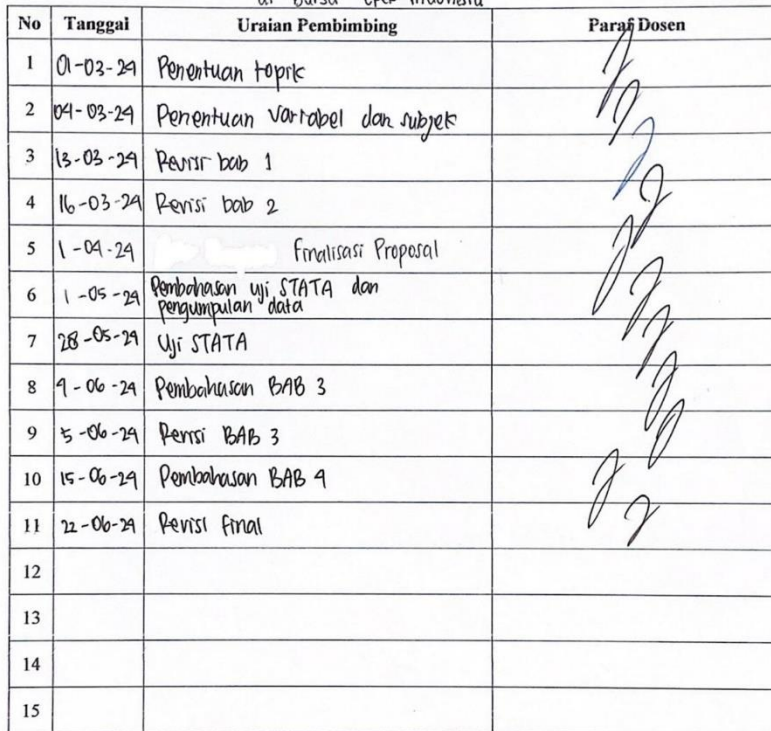 di Bursa Efek Indonesia
No Tanggal Uraian Pembimbing Paraf Dosen
1 01-03-24 Penentuan topik
2 04-03-24 Penentuan variabel dan subjek
3 13-03-24 Revisi bab 1
4 16-03-24 Revisi bab 2
5 1-04-24 Finalisasi Proposal
6 1-05-24 Pembahasan uji STATA dan
pengumpulan data
7 28-05-24 Uji STATA
8 4-06-24 Pembahasan BAB 3
9 5-06-24 Revisi BAB 3
10 15-06-24 Pembahasan BAB 4
11 22-06-24 Revisi final
12
13
14
15